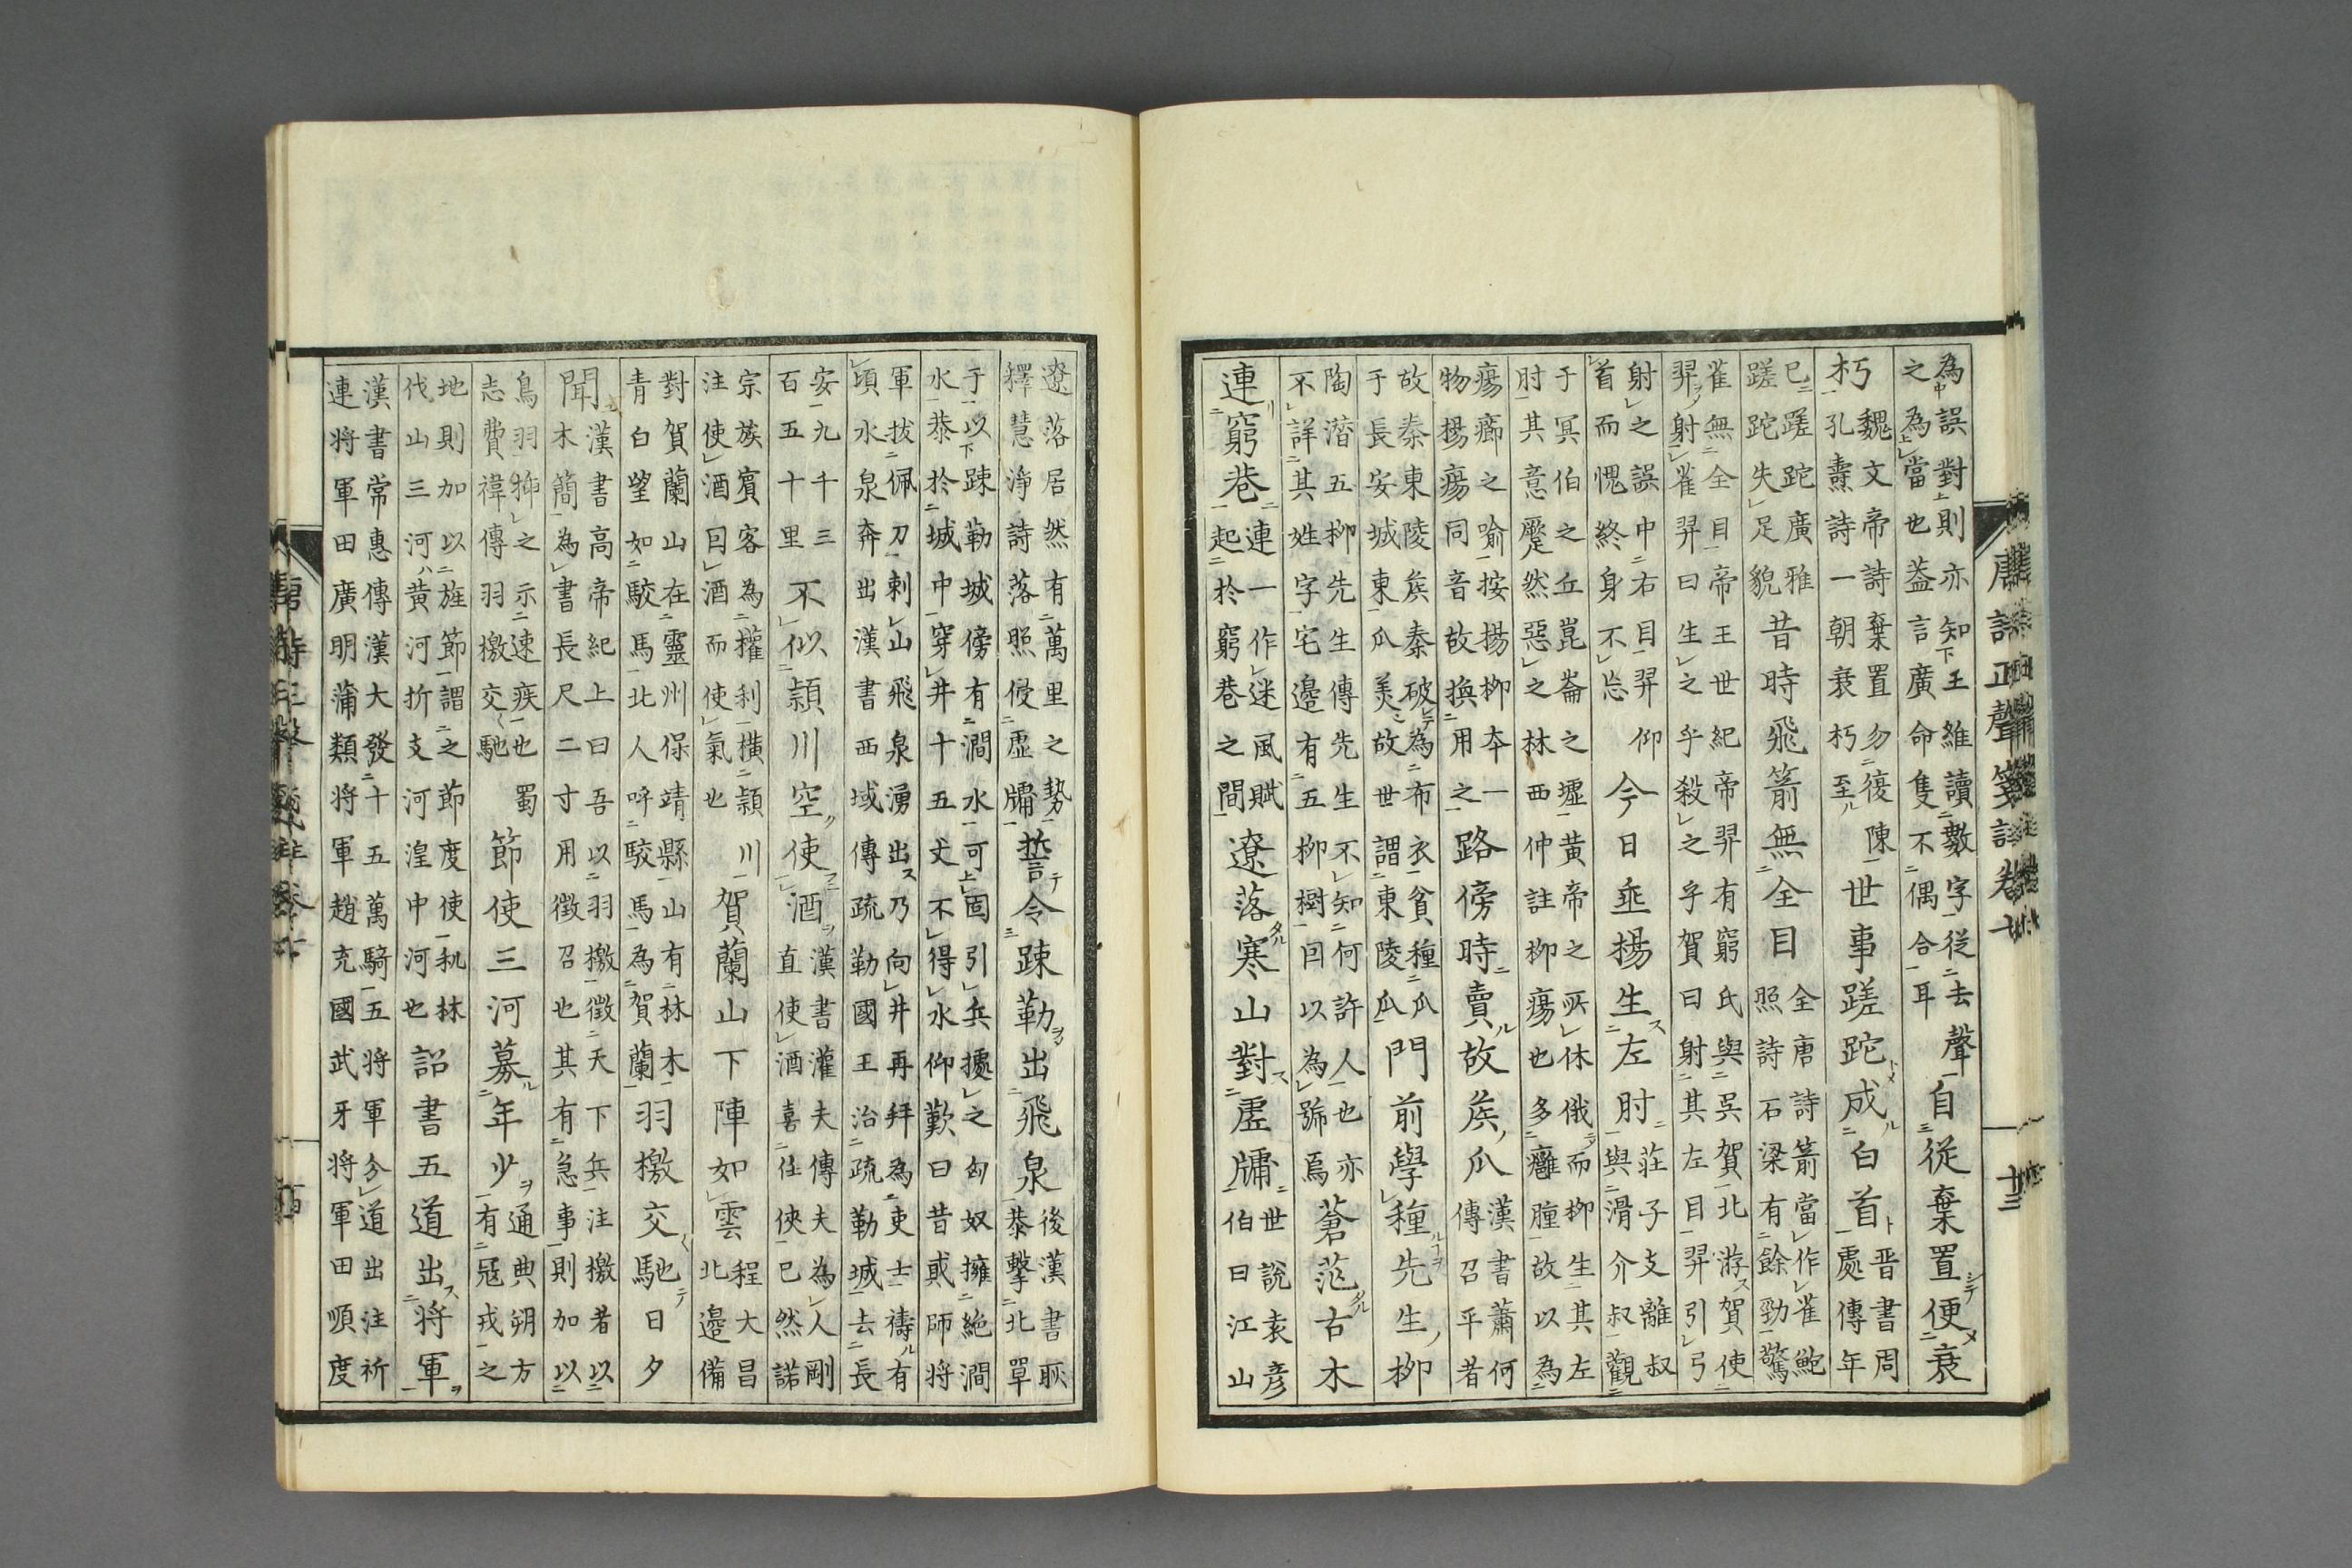 為誤對則亦知王維讀數字從去聲
之為當也蓋言廣命隻不偶合耳
自從棄置便衰
朽
魏文帝詩棄置勿復陳
孔燾詩一朝衰朽至
世事蹉跎成白首
晋書周
處傳年
已蹉跎廣雅
蹉跎失足貌
昔時飛箭無全目
全唐詩箭當作雀鮑
照詩石梁有餘勁驚
雀無全目帝王世紀帝羿有窮氏與吳賀北游賀使
羿射雀羿曰生之乎殺之乎賀曰射其左目羿引弓
射之誤中右目羿仰
首而愧終身不忘
今日垂楊生左肘
莊子支離叔
與滑介叔觀
于冥伯之丘崑崙之墟黃帝之所休俄而柳生其左
肘其意蹷然惡之林西仲註柳瘍也多癰腫故以為
瘍癤之喻按揚柳本一
物揚瘍同音故換用之
路傍時賣故侯瓜
漢書蕭何
傳召平者
故秦東陵侯秦破為布衣貧種瓜
于長安城東瓜美故世謂東陵瓜
門前學種先生柳
陶潛五柳先生傳先生不知何許人也亦
不詳其姓字宅邊有五柳樹因以為號焉
蒼茫古木
連窮巷
連一作迷風賦
起於窮巷之間
遼落寒山對虛牖
世說袁彥
伯曰江山
遼落居然有萬里之勢
釋慧淨詩落照侵虛牖
誓令疎勒出飛泉
後漢書耿
恭擊北單
于以疎勒城傍有澗水可固引兵據之匈奴擁絕澗
水恭於城中穿井十五丈不得水仰歎曰昔貳師將
軍拔佩刀刺山飛泉湧出乃向井再拜為吏士禱有
頃水泉奔出漢書西域傳疏勒國王治疏勒城去長
安九千三
百五十里
不似潁川空使酒
漢書灌夫傳夫為人剛
直使酒喜任俠已然諾
宗族賓客為權利橫潁川
注使酒因酒而使氣也
賀蘭山下陣如雲
程大昌
北邊備
對賀蘭山在靈州保靖縣山有林木
青白望如駮馬北人呼駮馬為賀蘭
羽檄交馳日夕
聞
漢書高帝紀上曰吾以羽檄徵天下兵注檄者以
木簡為書長尺二寸用徵召也其有急事則加以
鳥羽插之示速疾也蜀
志費禕傳羽檄交馳
節使三河募年少
通典朔方
有冦戎之
地則加以旌節謂之節度使秇林
伐山三河河黃河折支河湟中河也
詔書五道出將軍
漢書常惠傳漢大發十五萬騎五將軍分道出注祈
連將軍田廣明蒲類將軍趙充國武牙將軍田順度